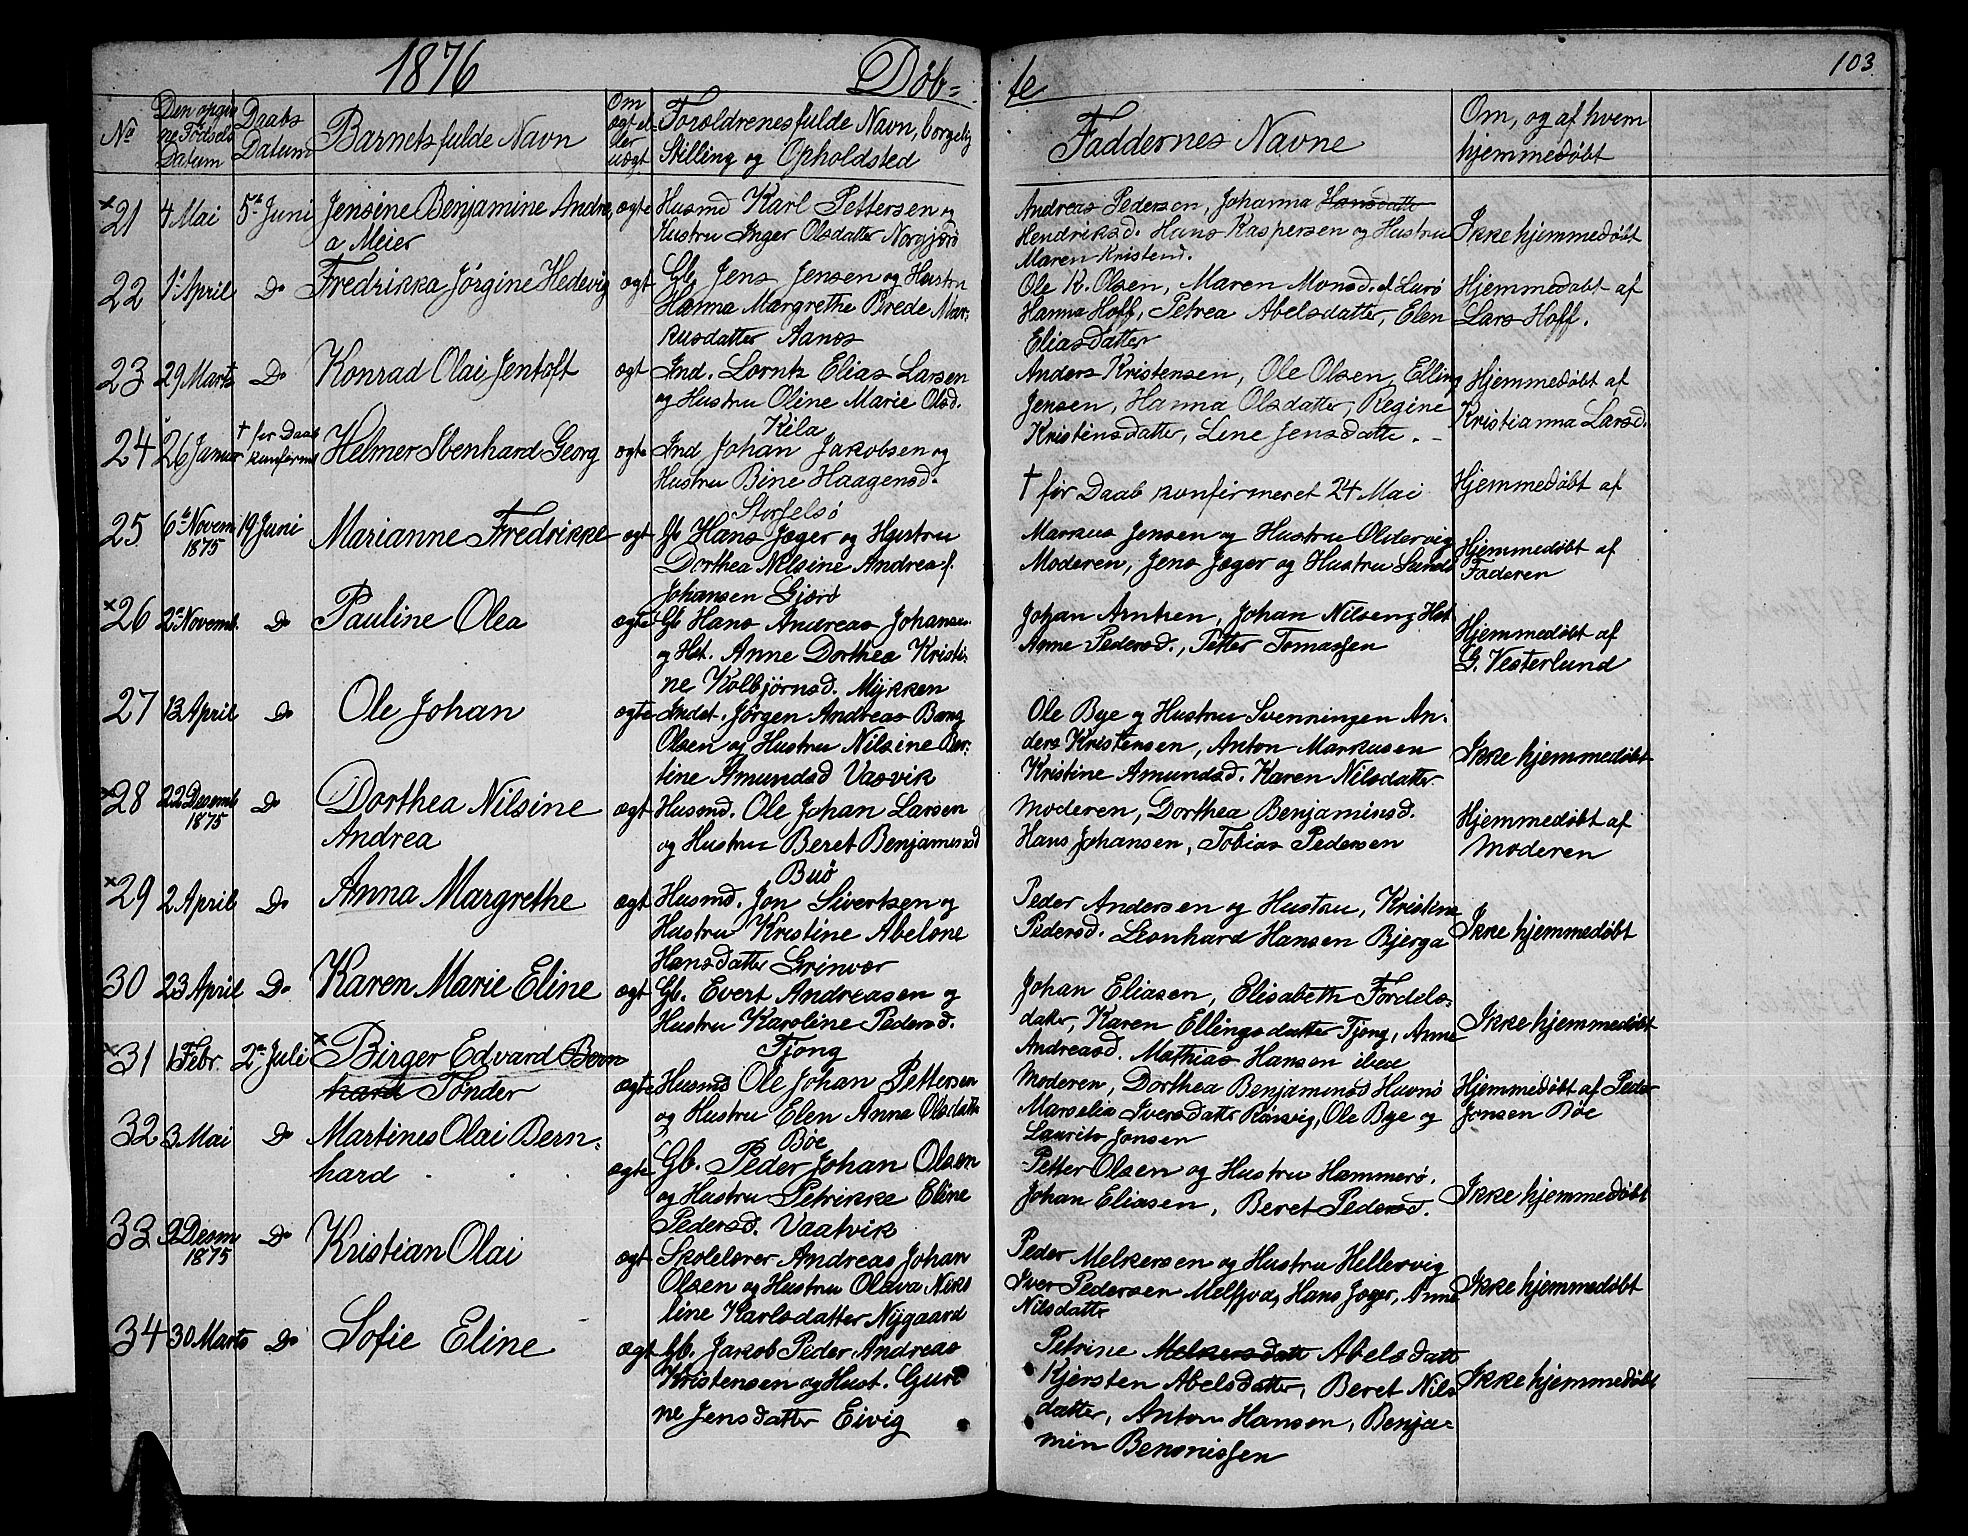 1876 Døb= te 103
No Den opgivne Fødsels Datum Daabs Datum Barnets fulde Navn Om ægte eller uægt. Forældrenes fulde Navn, borgelig Stilling og Opholdsted Faddernes Navne Om, og af hvem hjemmedøbt
×21 4 Mai 5te Juni Jensine Benjamine Andre, ægte Husmd Karl Pettersen og Andreas Pedersen, Johanna Hansdatter
a Meier Hustru Inger Olsdatter Hendriksd. Hans Kaspersen og Hustru Ikke hjemmedøbt
Maren Kristend.
22 1te April Do Fredrikka Jörgine Hedevig ægt Gb. Jens Jensen og Hustru Ole K. Olsen, Maren Monsd. Lurø Hjemmedøbt af
Hanna Margrethe Brede Mar= Hanna Hoff, Petrea Abelsdatter, Elen Lars Hoff.
kusdatter Aanes Eliasdatter
23 29 Marts Do Konrad Olai Jentoft ægt Ind. Lorntz Elias Larsen Anders Kristensen, Ole Olsen, Elling Hjemmedøbt af
og Hustru Oline Marie Olsd. Jensen, Hanna Olsdatter, Regine Kristianna Larsd.
Kila Kristensdatter, Line Jensdatter.
24 26 Januar † før Daab konfirmd Helmer Ibenhard Georg ægte Ind Johan Jakobsen og
Hustru Bine Haagensd. † før Daab konfirmeret 24 Mai Hjemmedøbt af
Storselsø
25 6te Novem 1875 19 Juni Marianne Fredrikke ægt Gb Hans Jæger og Hustru Markus Jensen og Hustru Oldervig Hjemmedøbt af
Dorthea Nilsine Andrea f. Moderen, Jens Jæger og Hustru Faderen
Johansen Gjerø
×26 2te Novemb. Do Pauline Olea ægte Gb Hans Andreas Johansen Johan Arntsen, Johan Nilsen og Hst. Hjemmedøbt af
og Hst. Anne Dorthea Kristi= Anne Pedersd., Petter Tomassen G. Vesterlund
ne Kolbjörnsd. Mykken
27 13 April Do Ole Johan ægte Indst. Jørgen Andreas Bang Ole Bye og Hustru Svenningen An=
Olsen og Hustru Nilsine Ber= ders Kristensen, Anton Markusen Ikke hjemmedøbt
tine Amundsd Vasvik Kristine Amundsd. Karen Nilsdatter
×28 22 Desemb 1875 Do Dorthea Nilsine ægt Husmd. Ole Johan Larsen Moderen, Dorthea Benjaminsd. Hjemmedøbt af
Andrea og Hustru Beret Benjaminsd Hans Johansen, Tobias Pedersen Moderen
Buø
×29 2 April Do Anna Margrethe ægt Husmd. Jon Sivertsen og Peder Andersen og Hustru, Kristine Ikke hjemmedøbt
Hustru Kristine Abelone Pedersd. Leonhard Hansen Bjerga
Hansdatter Grinvær
30 23 April Do Karen Marie Eline ægt Gb. Evert Andreasen og Johan Eliasen, Elisabeth Fordels=
Hustru Karoline Pedersd. datter, Karen Ellingsdatter Tjong, Anne Ikke hjemmedøbt
Tjong Andreasd. Mathias Hansen ibid
×31 1 Febr. 2te Juli ×Birger Edvard Bern ægte Husmd Ole Johan Pettersen Moderen, Dorthea Benjaminsd Havnø Hjemmedøbt af Peder
hard Tønder og Hustru Elen Anna Olsdatter Marselia Iversdatter Rørvig, Ole Bye og Jonsen Bøe
Bøe Laurits Jonsen
32 3 Mai Do Martines Olai Bern= ægte Gb. Peder Johan Olsen Petter Olsen og Hustru Hammerø.
hard og Hustru Petrikke Eline Johan Eliasen, Beret Pedersd. Ikke hjemmedøbt
Pedersd. Vaatvik
33 9 Desem 1875 Do Kristian Olai ægt Skolelærer Andreas Johan Peder Melkersen og Hustru Hellervig
Olsen og Hustru Olava Niko Iver Pedersen Melfjord, Hans Jæger, Anne Ikke hjemmedøbt
line Karlsdatter Nygaard Nilsdatter
34 30 Marts Do Sofie Eline ægt Gb. Jakob Peder Andreas Petrine Melkersdatt Abelsdatt
Kristensen og Hust. Guri Kjersten Abelsdatter, Beret Nils Ikke hjemmedøbt
ne Jensdatter Eivig datter, Anton Hansen, Benja=
min Benonissen